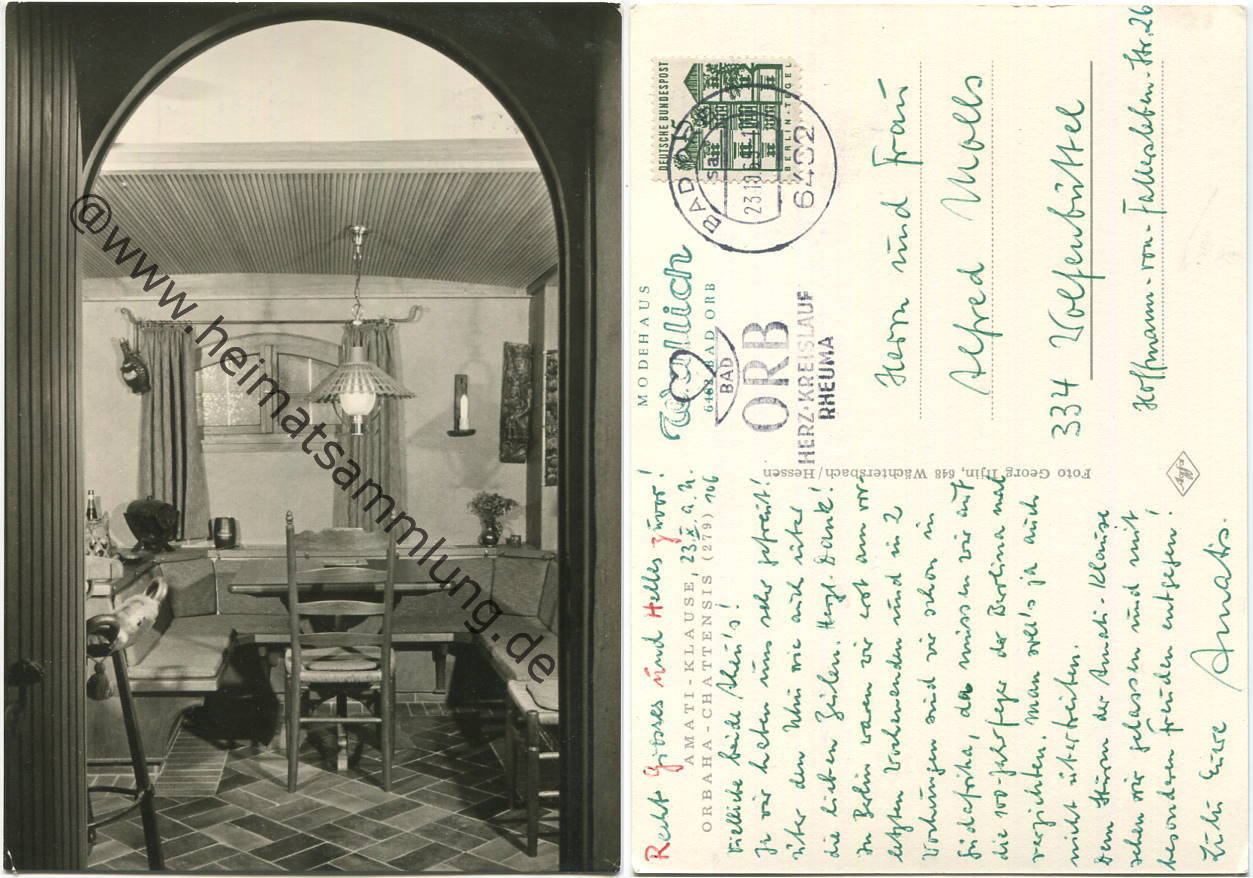 @www.heimatsammlung.de
DEUTSCHE BUNDESPOST
BERLIN-TEGEL
BAD ORB
23.10.69
6482
MODEHAUS
Wallich
6482 BAD ORB
BAD
ORB
HERZ·KREISLAUF
RHEUMA
Herrn und Frau
Alfred Molls
334 Wolfenbüttel
Hoffmann-von-Fallersleben-Str. 26
Foto Georg Irjin, 648 Wächtersbach/Hessen
Agfa
Recht Grosses und Helles zuvor!
AMATI-KLAUSE, 23.X. a.U.
ORBAHA-CHATTENSIS (279) 106
Vielliebe beide
Ja wir haben uns sehr gefreut!
über den Uhu wie auch über
die lieben Zeilen. Herzl. Dank!
In Berlin waren wir erst am vor-
letzten Wochenende und in 2
Wochen sind wir schon in
Südafrika, da müssen wir auf
die 100-Jahrfeier der Berolina mal
verzichten. Man soll's ja auch
nicht übertreiben.
Dem Sturm der Amati-Klause
sehen wir gelassen und mit
besonderen Freuden entgegen!
Lulu Eure Amatis.